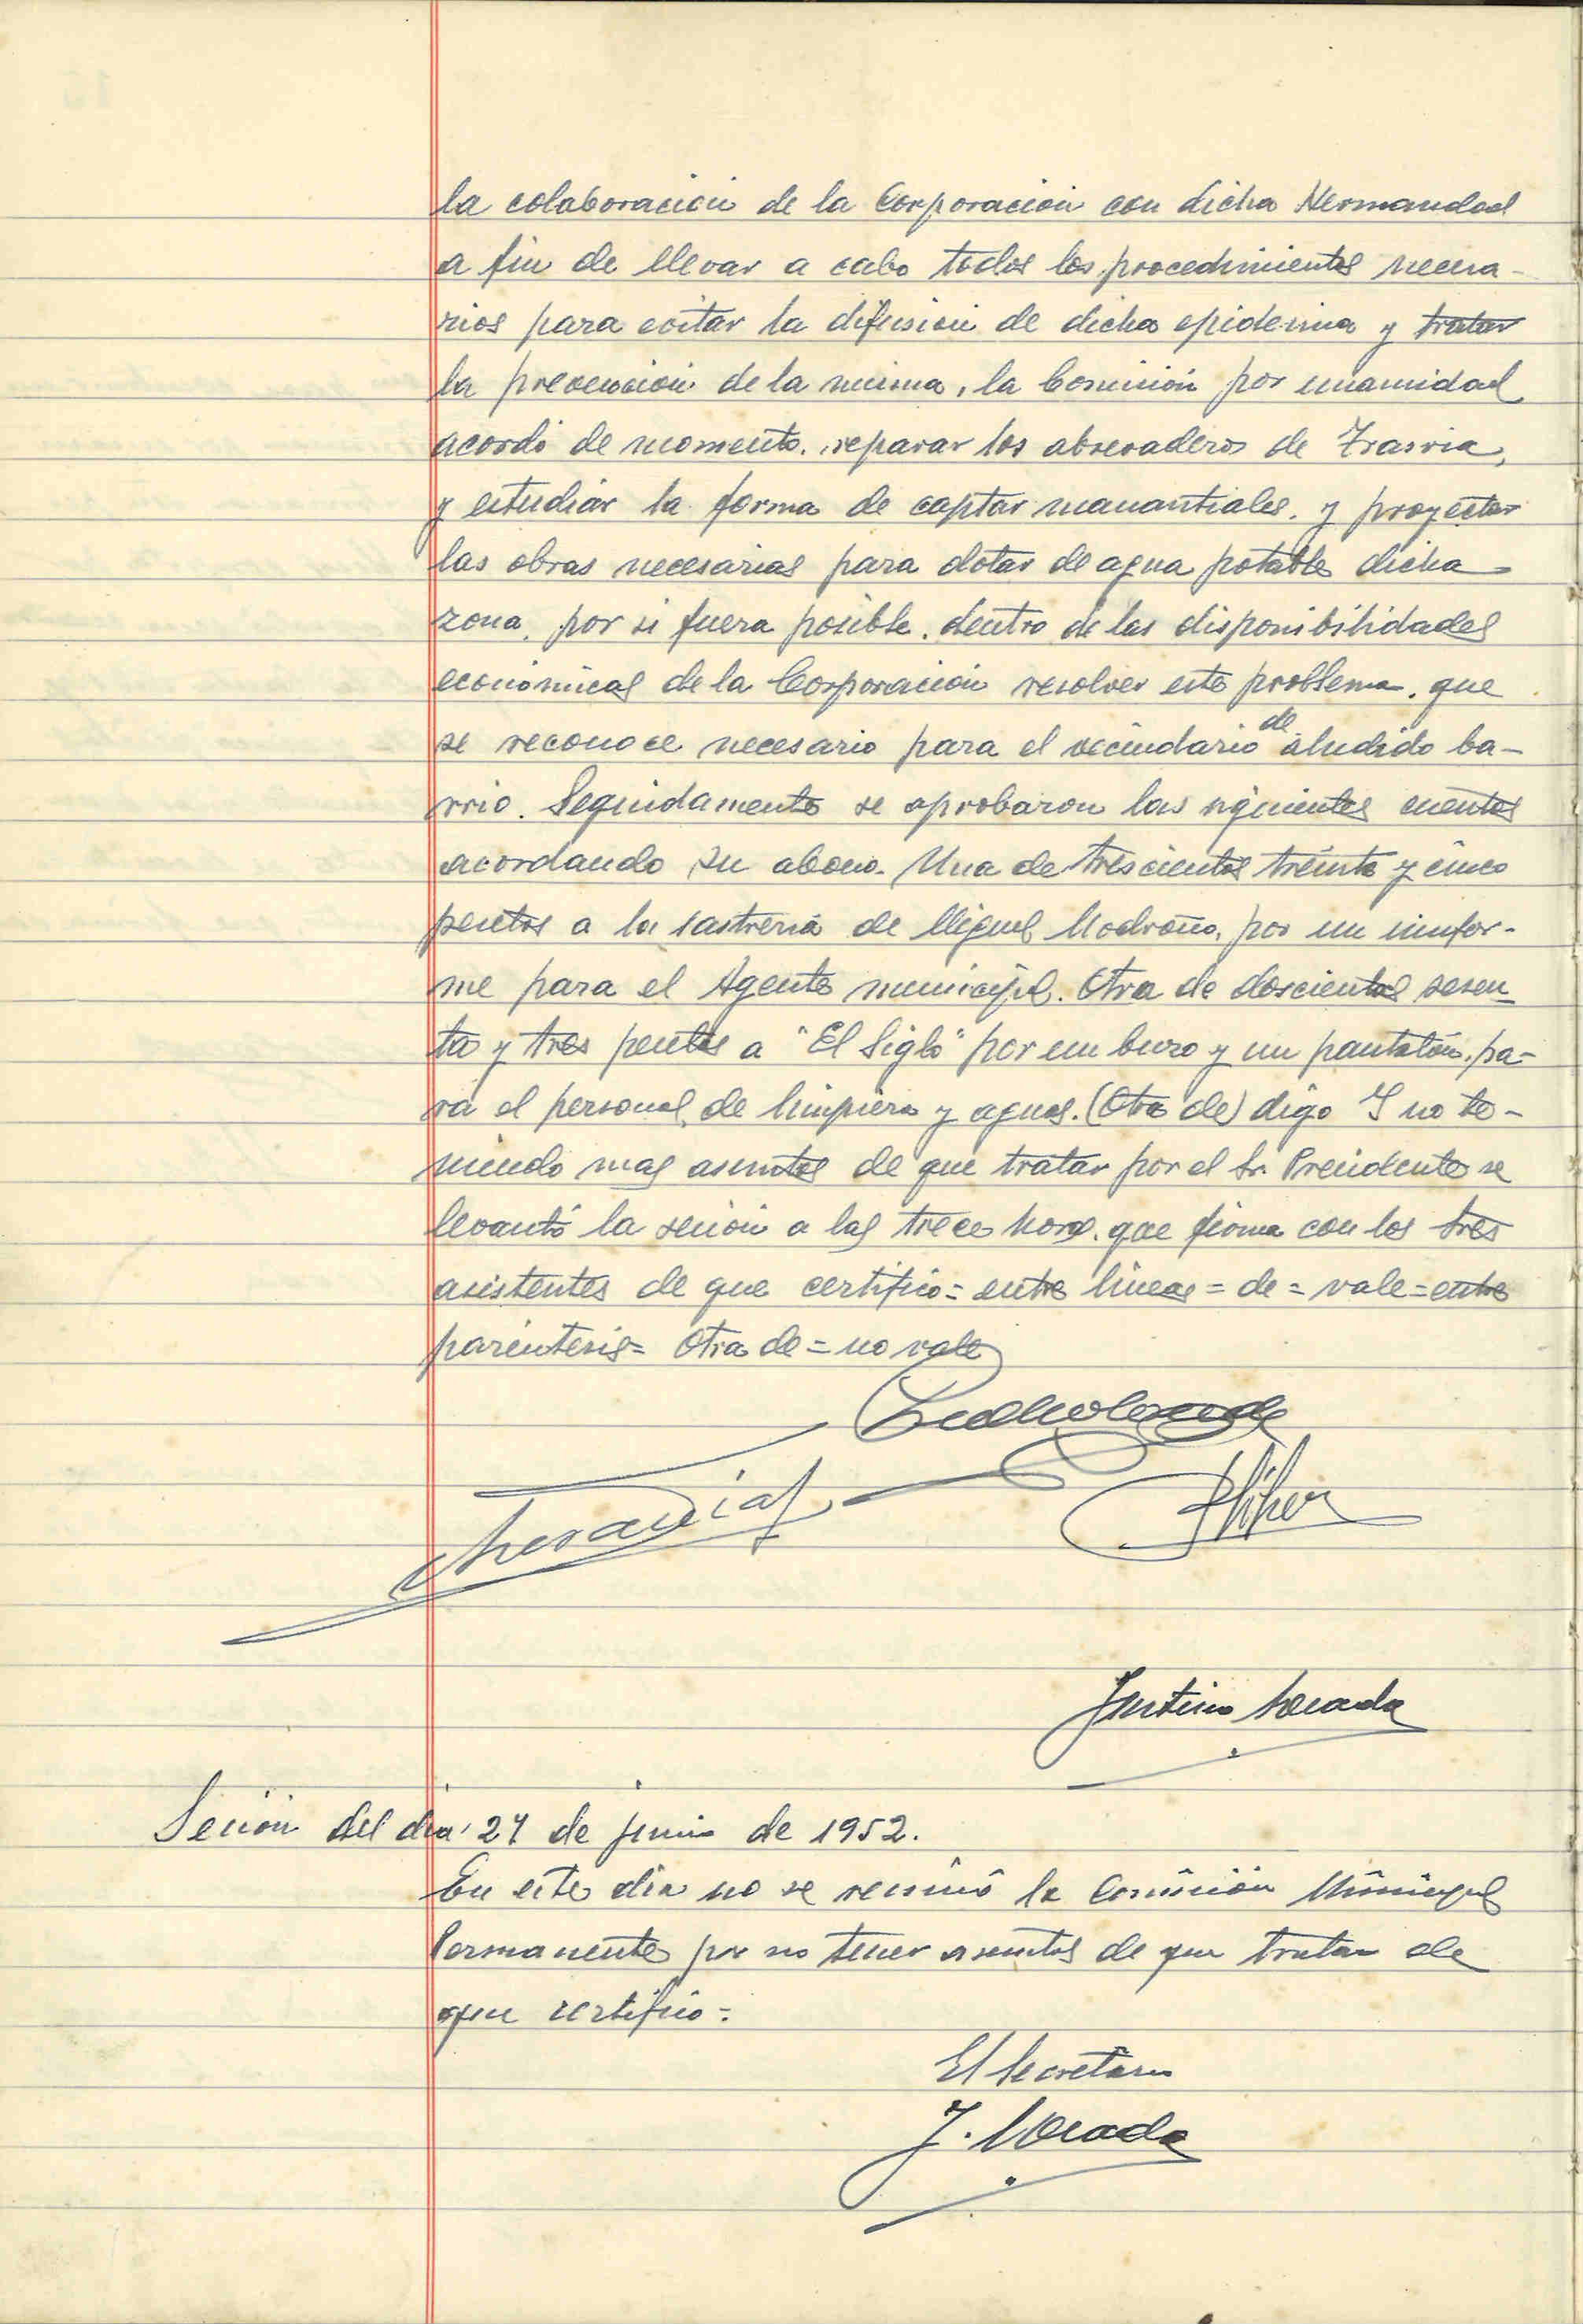 la colaboración de la Corporación con dicha Hermandad
a fin de llevar a cabo todos los procedimientos necesa-
rios para evitar la difusión de dicha epidemia y tratar
la prevención de la misma, la Comisión por unanimidad
acordó de momento, reparar los abrevaderos de Trasvia,
y estudiar la forma de captar manantiales, y proyectar
las obras necesarias para dotar de agua potable dicha
zona, por si fuera posible, dentro de las disponibilidades
económicas de la Corporación resolver este problema, que
se reconoce necesario para el vecindario de aludido ba-
rrio. Seguidamente se aprobaron las siguientes cuentas
acordando su abono. Una de trescientas treinta y cinco
pesetas a la sastrería de Miguel Modroño, por un unifor-
me para el Agente municipal. Otra de doscientas sesen-
ta y tres pesetas a "El Siglo" por un buzo y un pantalón, pa-
ra el personal de limpieza y aguas. (Otra de) digo Y no te-
niendo mas asuntos de que tratar por el Sr. Presidente se
levantó la sesión a las trece horas, que firma con los tres
asistentes de que certifico = entre lineas = de = vale = entre
paréntesis = Otra de = no vale
Justino Morada
Sesión del día 27 de junio de 1952.
En este día no se reunió la Comisión Municipal
Permanente por no tener asuntos de que tratar de
que certifico =
El Secretario
J. Morada